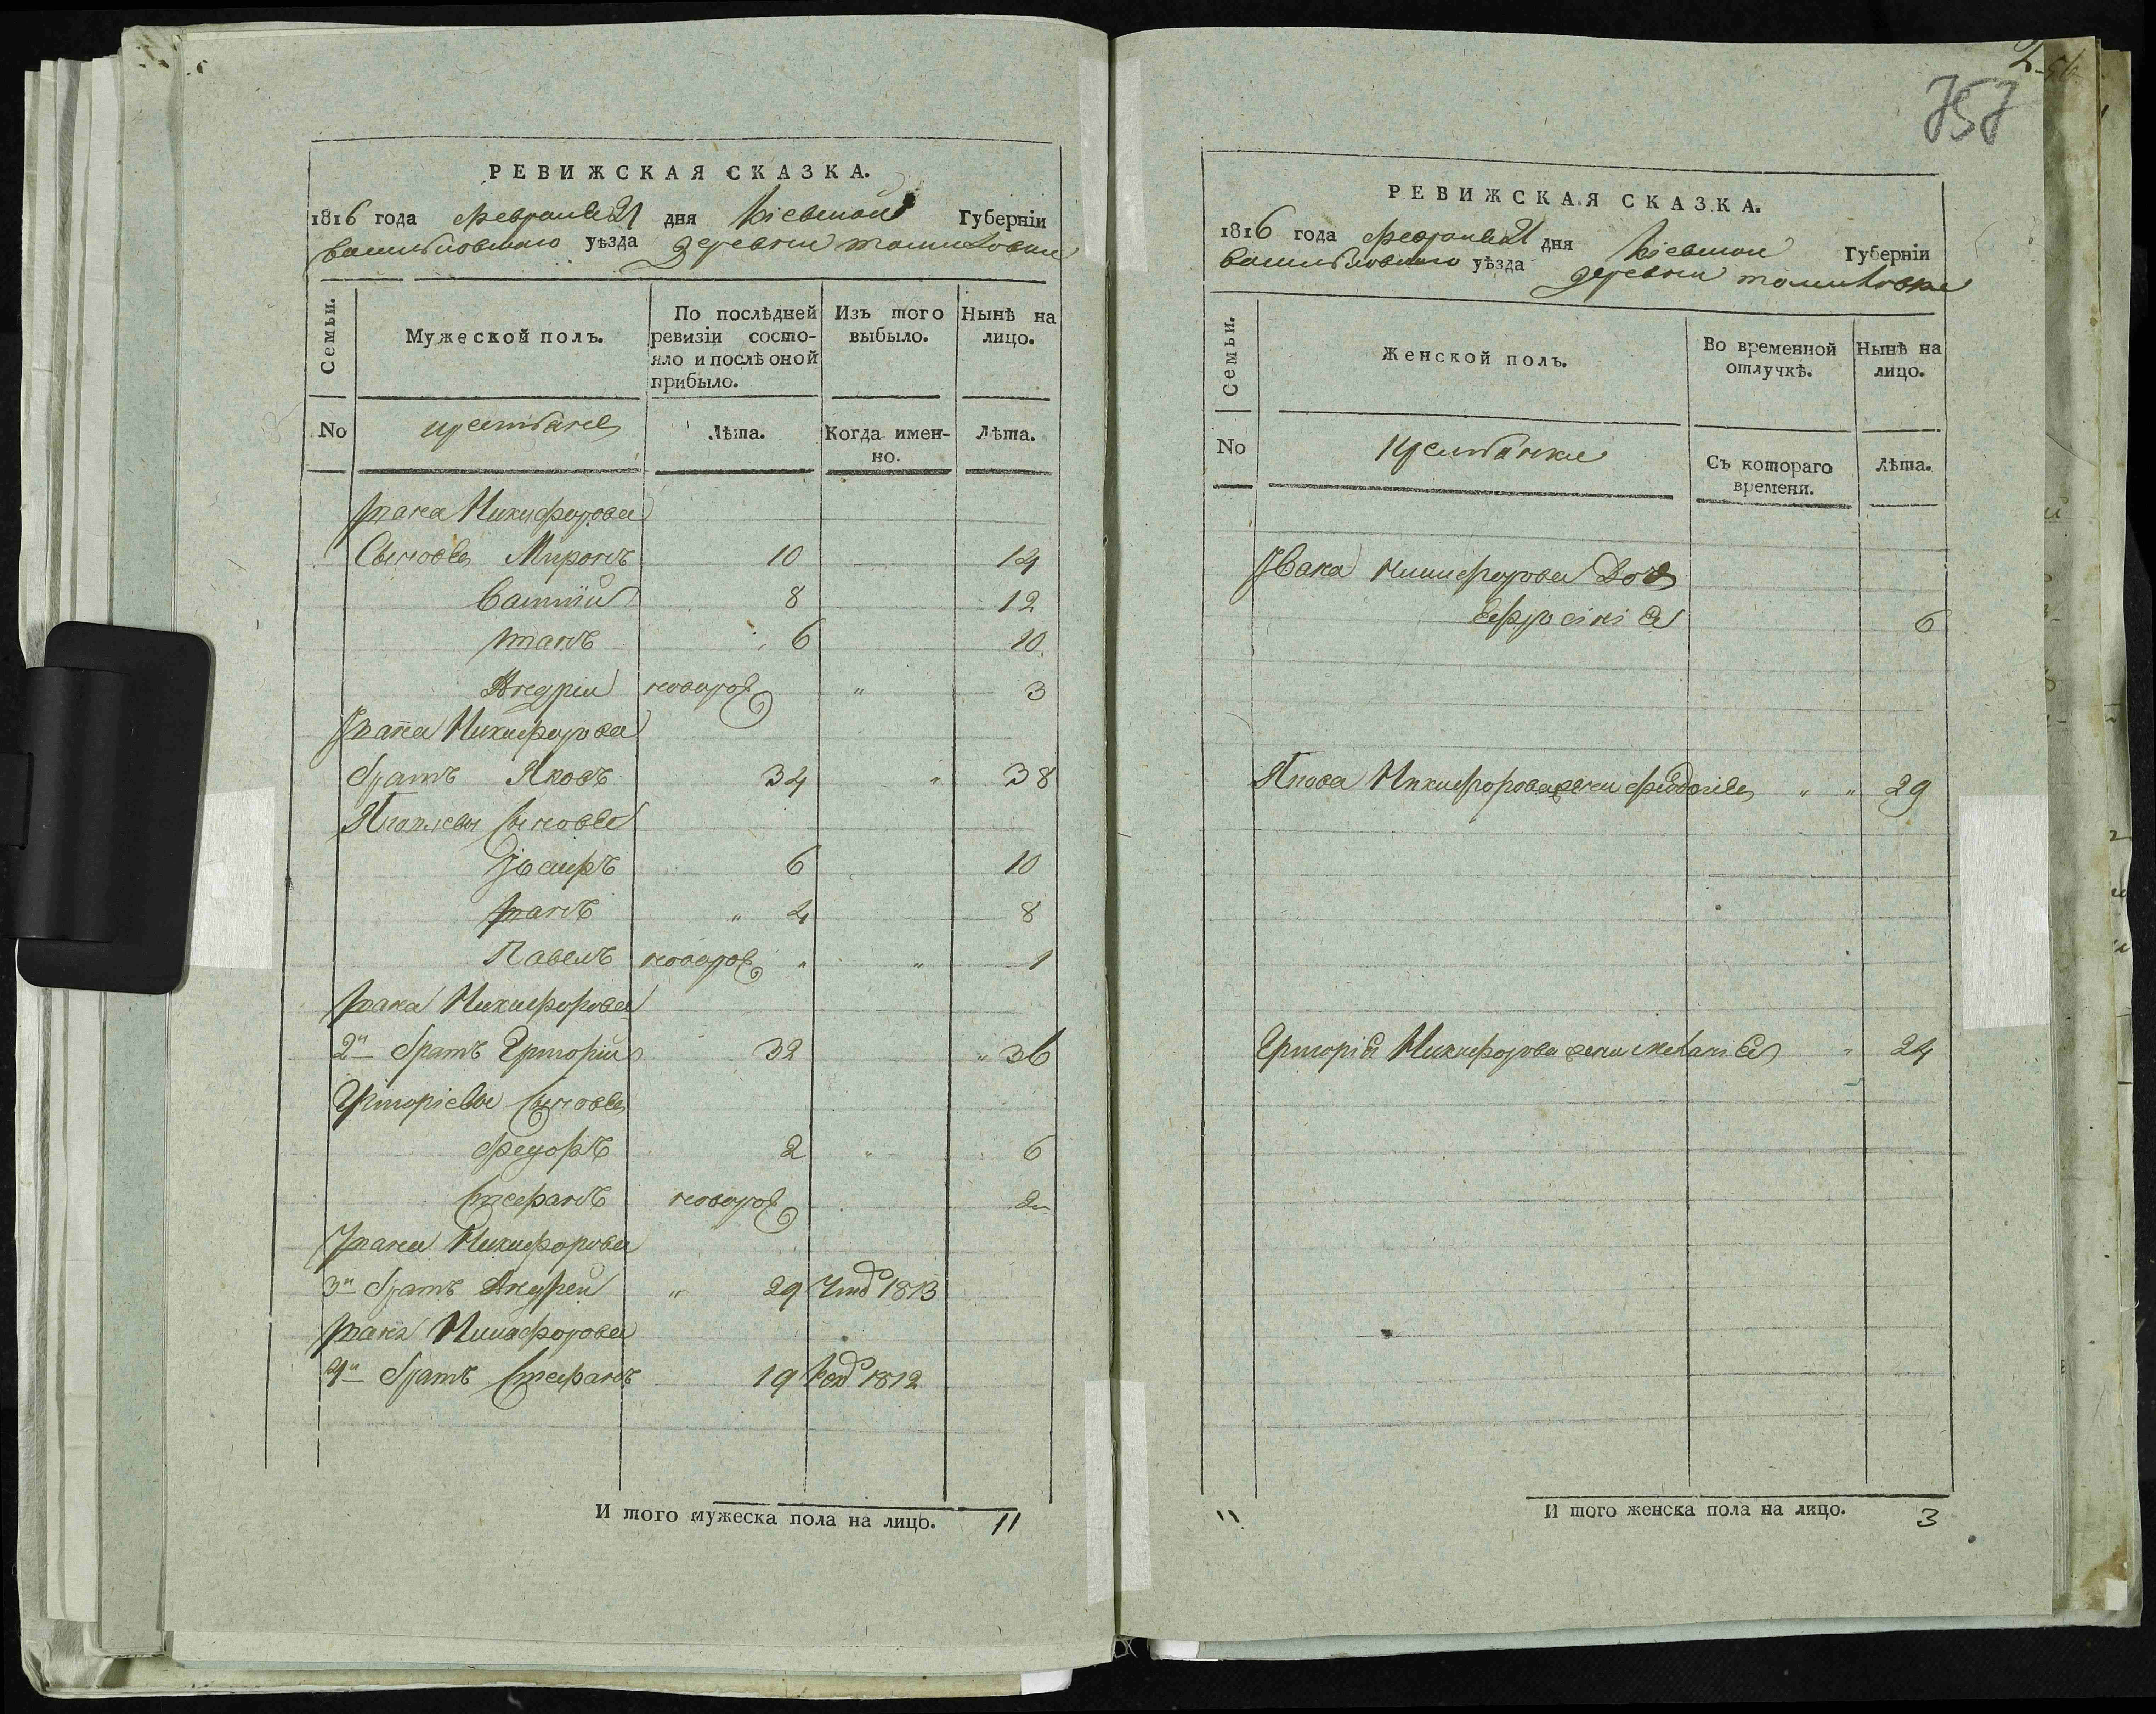 757
РЕВИЖСКАЯ СКАЗКА.
1816 года февраля 21 дня Кіевской Губерніи
Васильковскаго уѣзда деревни томиловки
Семьи.
Мужеской полъ.
По послѣдней ревизіи состояло и послѣ оной прибыло.
Изъ того выбыло.
Нынѣ на лицо.
No
крестьяне
Лѣта.
Когда именно.
Лѣта.
Ивана Никифорова
Сыновья Миронъ 10 14
Василій 8 12
Иванъ 6 10
Андрей новорож " 3
Ивана Никифорова
братъ Яковъ 34 " 38
Яковлевы сыновья
Іосифъ 6 10
Иванъ " 4 8
Павелъ новорож " " 1
Ивана Никифорова
2й братъ Григорій 32 " 36
Григоріевы сыновья
Федоръ 2 " 6
Стефанъ новорож 2
Ивана Никифорова
3й братъ Андрей " 29 1813
Ивана Никифорова
4й братъ Стефанъ 19 1812
И того мужеска пола на лицо. 11
РЕВИЖСКАЯ СКАЗКА.
1816 года февраля 21 дня Кіевской Губерніи
Васильковскаго уѣзда деревни томиловки
Семьи.
Женской полъ.
Во временной отлучкѣ.
Нынѣ на лицо.
No
Крестьянки
Съ котораго времени.
Лѣта.
Ивана Никифорова Дочь
Ефросинія 6
Якова Никифорова жена Феодосія " " 29
Григорія Никифорова жена Меланія " 24
"
И того женска пола на лицо. 3